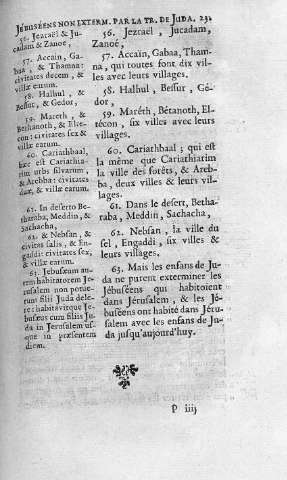 JÉBUSÉENS NON EXTERM. PAR LA TR. DE JUDA. 231
56. Jezraël & Ju-
cadam & Zanoë,
57. Accain, Gabaa, & Thamna:
civitates decem, &
villæ earum.
58. Halhul, &
Bessur, & Gedor,
59. Mareth, &
Bethanoth, & Elte-
con: civitates sex
& villæ earum.
60. Cariathbaal,
hæc est Cariathia-
rim urbs silvarum,
& Arebba: civitates
duæ, & villæ earum.
61. In deserto Be-
tharaba, Meddin, &
Sachacha,
62. & Nebsan, &
civitas salis, & En-
gaddi: civitates sex,
& villæ earum.
63. Jebusæum au-
tem habitatorem Je-
rusalem non potue-
runt filii Juda dele-
re: habitavitque Je-
busæus cum filiis Ju-
da in Jerusalem us-
que in præsentem
diem.
56. Jezraël, Jucadam,
Zanoé,
57. Accain, Gabaa, Tham-
na, qui toutes font dix vil-
les avec leurs villages.
58. Halhul, Bessur, Gé-
dor,
59. Maréth, Bétanoth, El-
técon, six villes avec leurs
villages.
60. Cariathbaal; qui est
la même que Cariathiarim
la ville des forêts, & Areb-
ba, deux villes & leurs vil-
lages.
61. Dans le desert, Betha-
raba, Meddin, Sachacha,
62. Nebsan, la ville du
sel, Engaddi, six villes &
leurs villages.
63. Mais les enfans de Ju-
da ne purent exterminer les
Jébuséens qui habitoient
dans Jérusalem, & les Jé-
buséens ont habité dans Jéru-
salem avec les enfans de Ju-
da jusqu'aujourd'huy.
P iiij